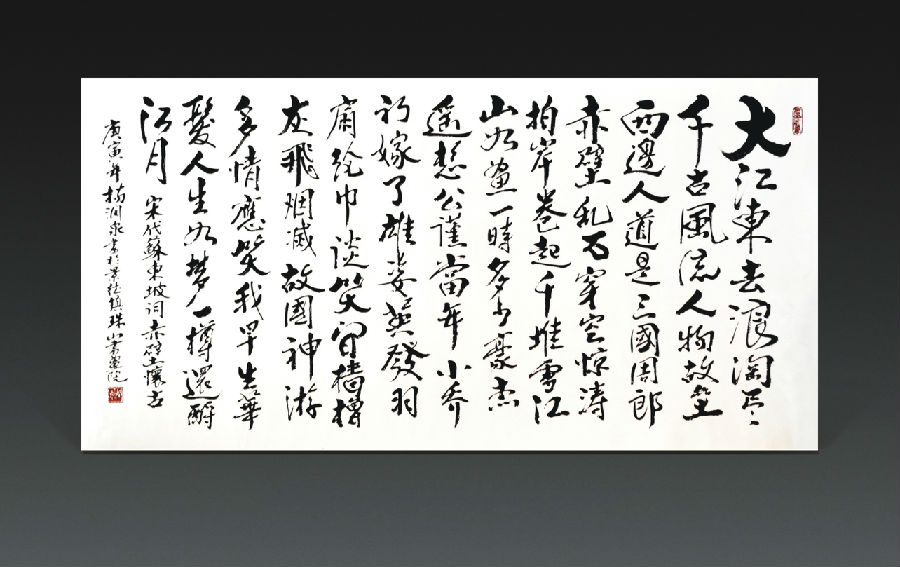 大江東去浪淘尽
千古風流人物故壘
西邊人道是三國周郎
赤壁乱石穿空惊涛
拍岸卷起千堆雪江
山如畫一時多少豪杰
遥想公謹當年小乔
初嫁了雄姿英發羽
扇纶巾谈笑间檣櫓
灰飛烟滅故國神游
多情應笑我早生華
髮人生如梦一樽還酹
江月 宋代蘇東坡词赤壁懷古
庚寅年楊泉書於景德鎮珠山書畫院